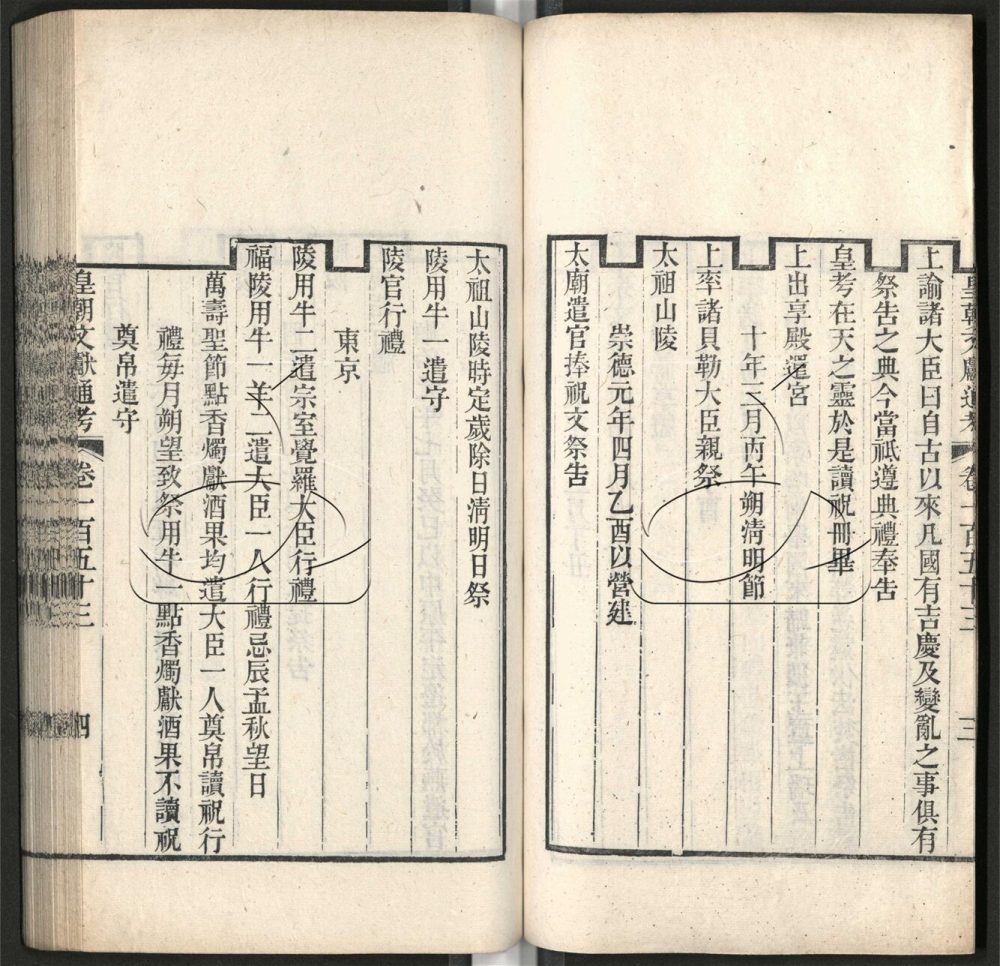 皇朝文獻通考 卷一百五十三 三
上諭諸大臣曰自古以來凡國有吉慶及變亂之事俱有
祭告之典今當祇遵典禮奉告
皇考在天之靈於是讀祝冊畢
上出享殿還宮
十年三月丙午朔清明節
上率諸貝勒大臣親祭
太祖山陵
崇德元年四月乙酉以營建
太廟遣官捧祝文祭告
太祖山陵時定歲除日清明日祭
陵用牛一遣守
陵官行禮
東京
陵用牛二遣宗室覺羅大臣行禮
福陵用牛一羊二遣大臣一人行禮忌辰孟秋望日
萬壽聖節點香燭獻酒果均遣大臣一人奠帛讀祝行
禮每月朔望致祭用牛一點香燭獻酒果不讀祝
奠帛遣守
皇朝文獻通考 卷一百五十三 四